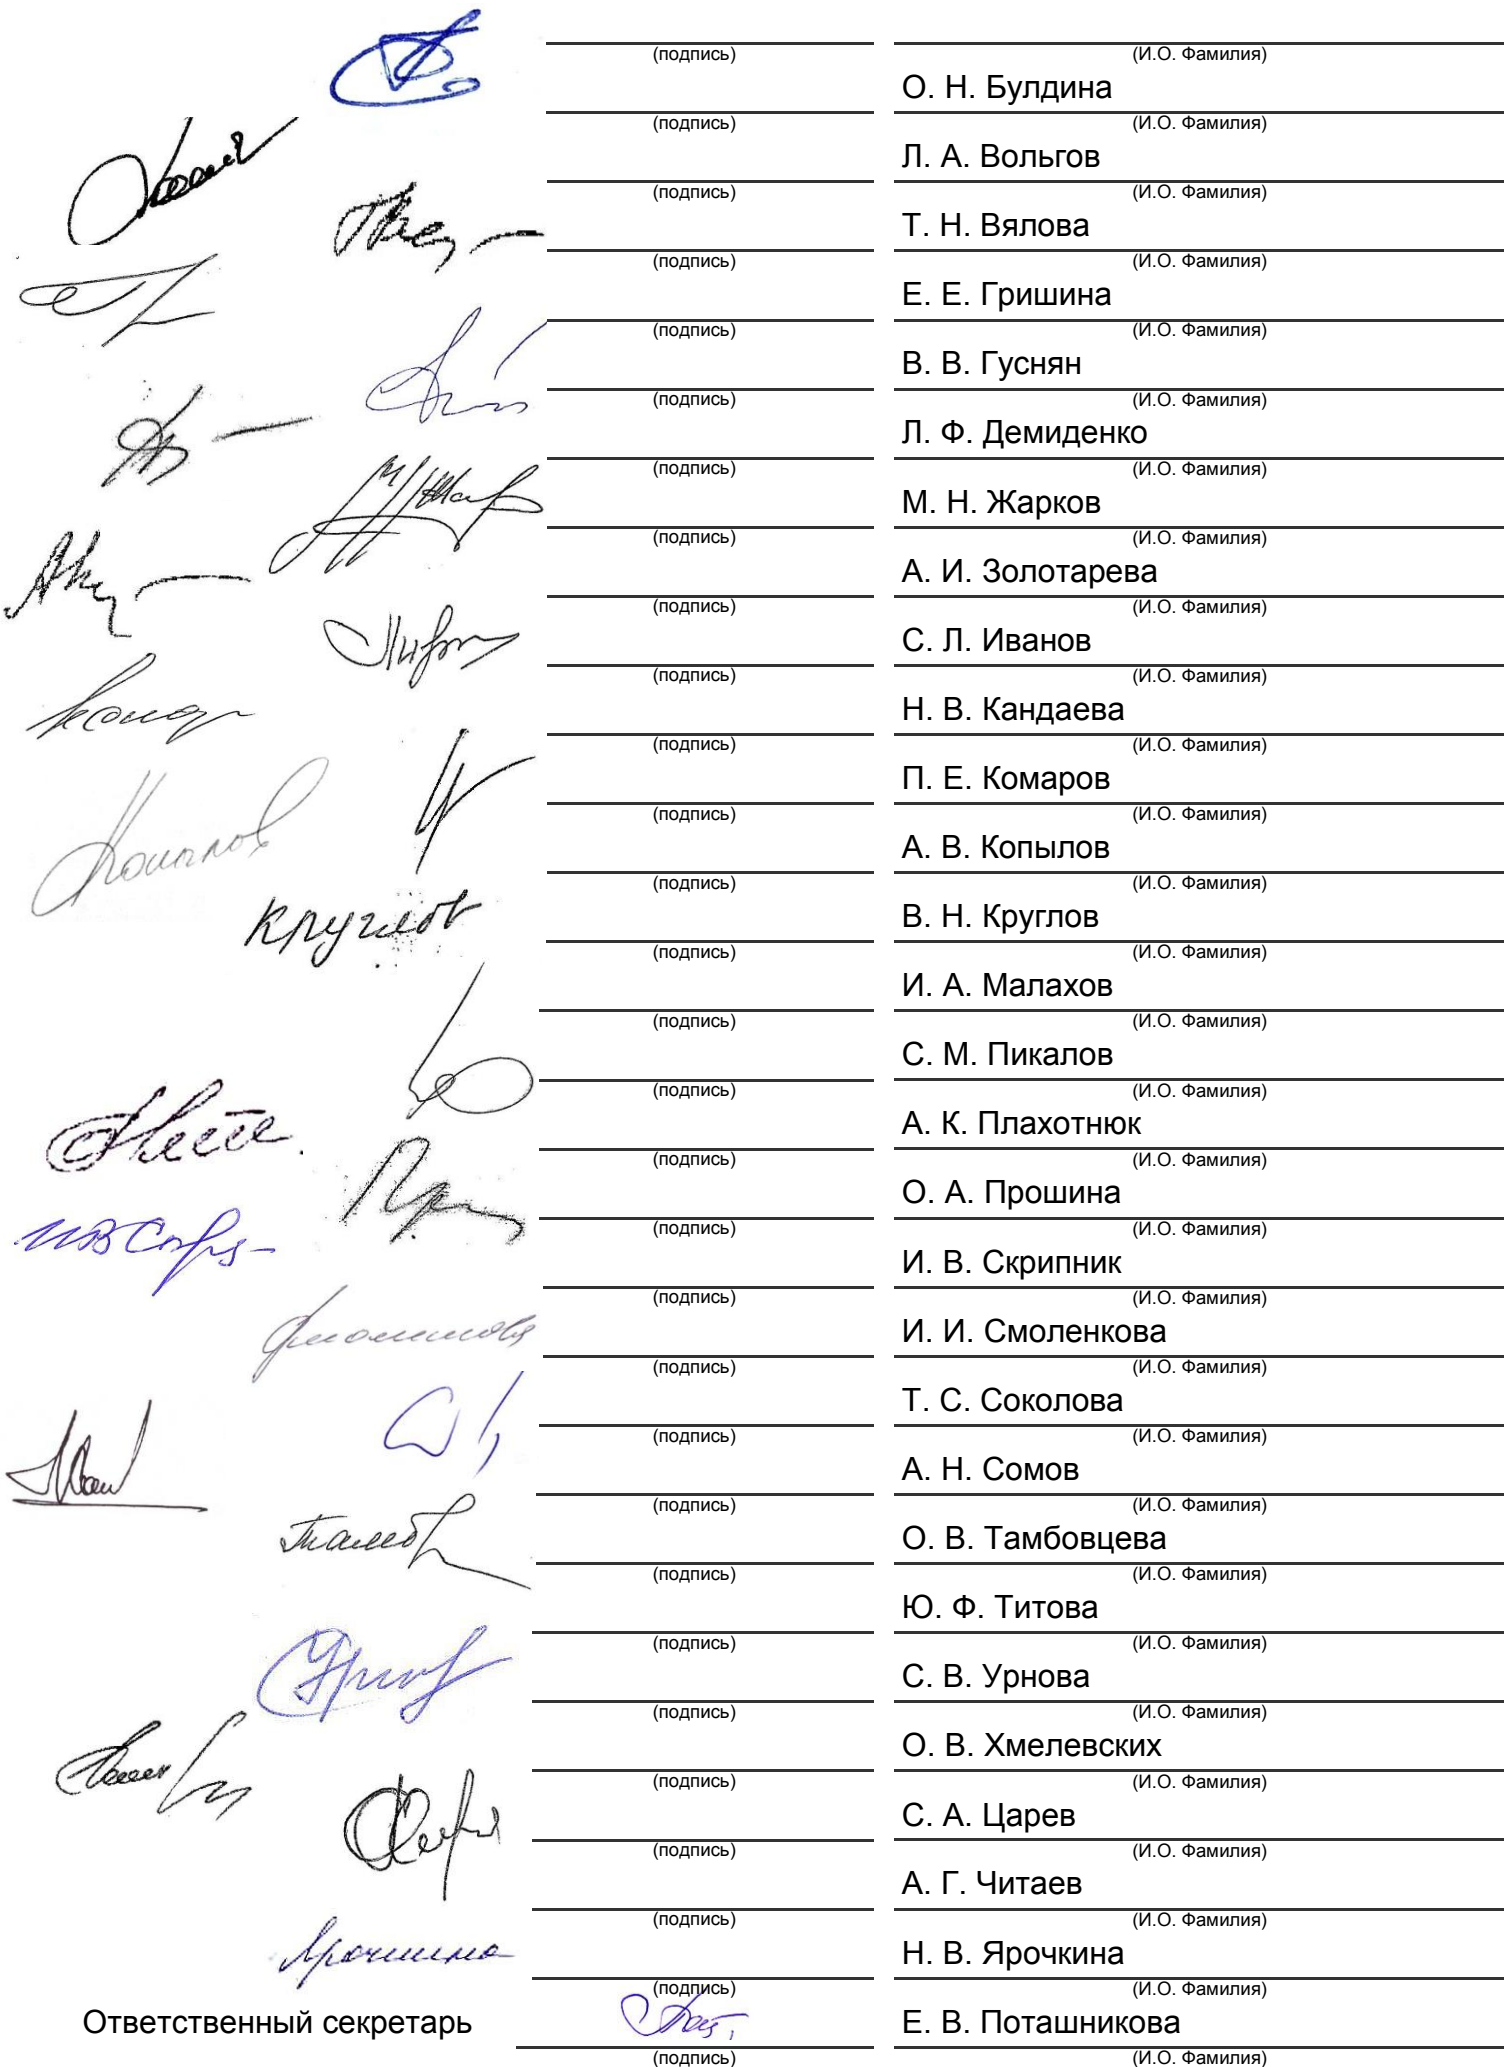 (подпись) (И.О. Фамилия)
О. Н. Булдина
(подпись) (И.О. Фамилия)
Л. А. Вольгов
(подпись) (И.О. Фамилия)
Т. Н. Вялова
(подпись) (И.О. Фамилия)
Е. Е. Гришина
(подпись) (И.О. Фамилия)
В. В. Гуснян
(подпись) (И.О. Фамилия)
Л. Ф. Демиденко
(подпись) (И.О. Фамилия)
М. Н. Жарков
(подпись) (И.О. Фамилия)
А. И. Золотарева
(подпись) (И.О. Фамилия)
С. Л. Иванов
(подпись) (И.О. Фамилия)
Н. В. Кандаева
(подпись) (И.О. Фамилия)
П. Е. Комаров
(подпись) (И.О. Фамилия)
А. В. Копылов
(подпись) (И.О. Фамилия)
Круглов В. Н. Круглов
(подпись) (И.О. Фамилия)
И. А. Малахов
(подпись) (И.О. Фамилия)
С. М. Пикалов
(подпись) (И.О. Фамилия)
А. К. Плахотнюк
(подпись) (И.О. Фамилия)
О. А. Прошина
(подпись) (И.О. Фамилия)
И. В. Скрипник
(подпись) (И.О. Фамилия)
И. И. Смоленкова
(подпись) (И.О. Фамилия)
Т. С. Соколова
(подпись) (И.О. Фамилия)
А. Н. Сомов
(подпись) (И.О. Фамилия)
О. В. Тамбовцева
(подпись) (И.О. Фамилия)
Ю. Ф. Титова
(подпись) (И.О. Фамилия)
С. В. Урнова
(подпись) (И.О. Фамилия)
О. В. Хмелевских
(подпись) (И.О. Фамилия)
С. А. Царев
(подпись) (И.О. Фамилия)
А. Г. Читаев
(подпись) (И.О. Фамилия)
Н. В. Ярочкина
(подпись) (И.О. Фамилия)
Ответственный секретарь Е. В. Поташникова
(подпись) (И.О. Фамилия)